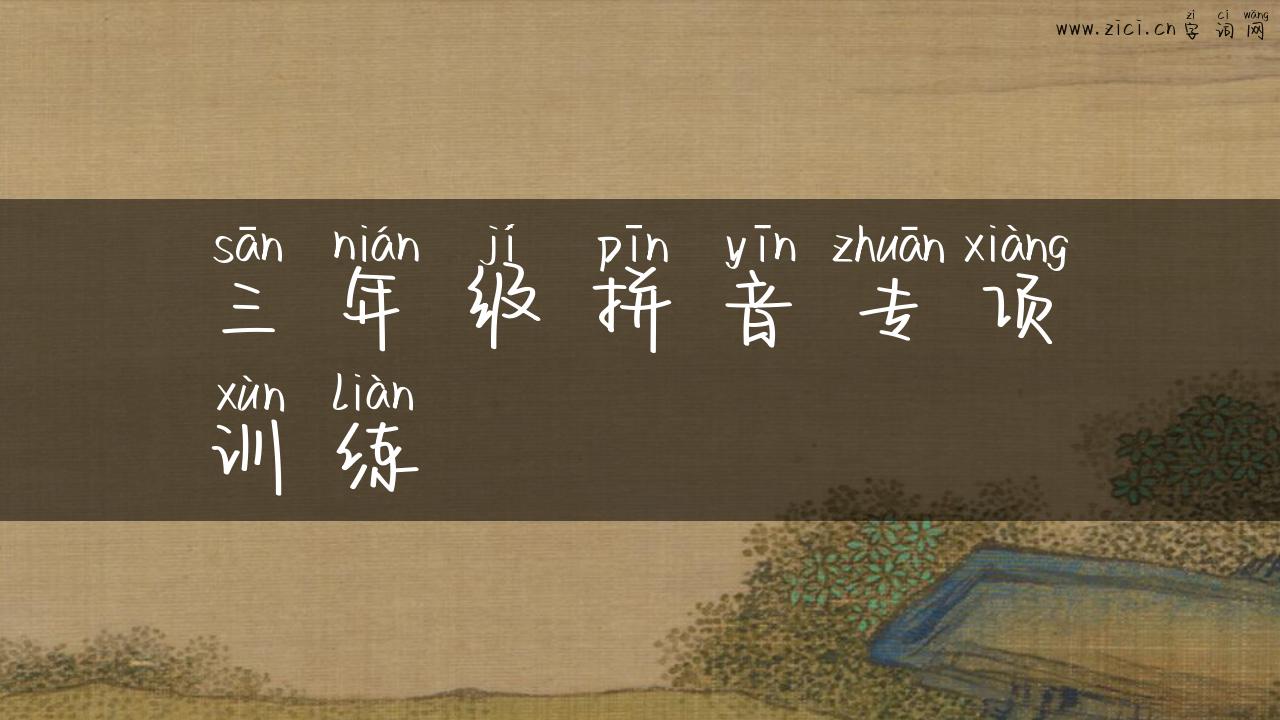 zì cí wǎng
www.zici.cn 字词网
sān nián jí pīn yīn zhuān xiàng
三年级拼音专项
xùn liàn
训练